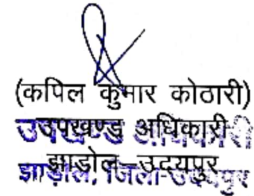 (कपिल कुमार कोठारी)
उपखण्ड अधिकारी
उपखण्ड अधिकारी
झाडोल-उदयपुर
झाड़ोल, जिला-उदयपुर